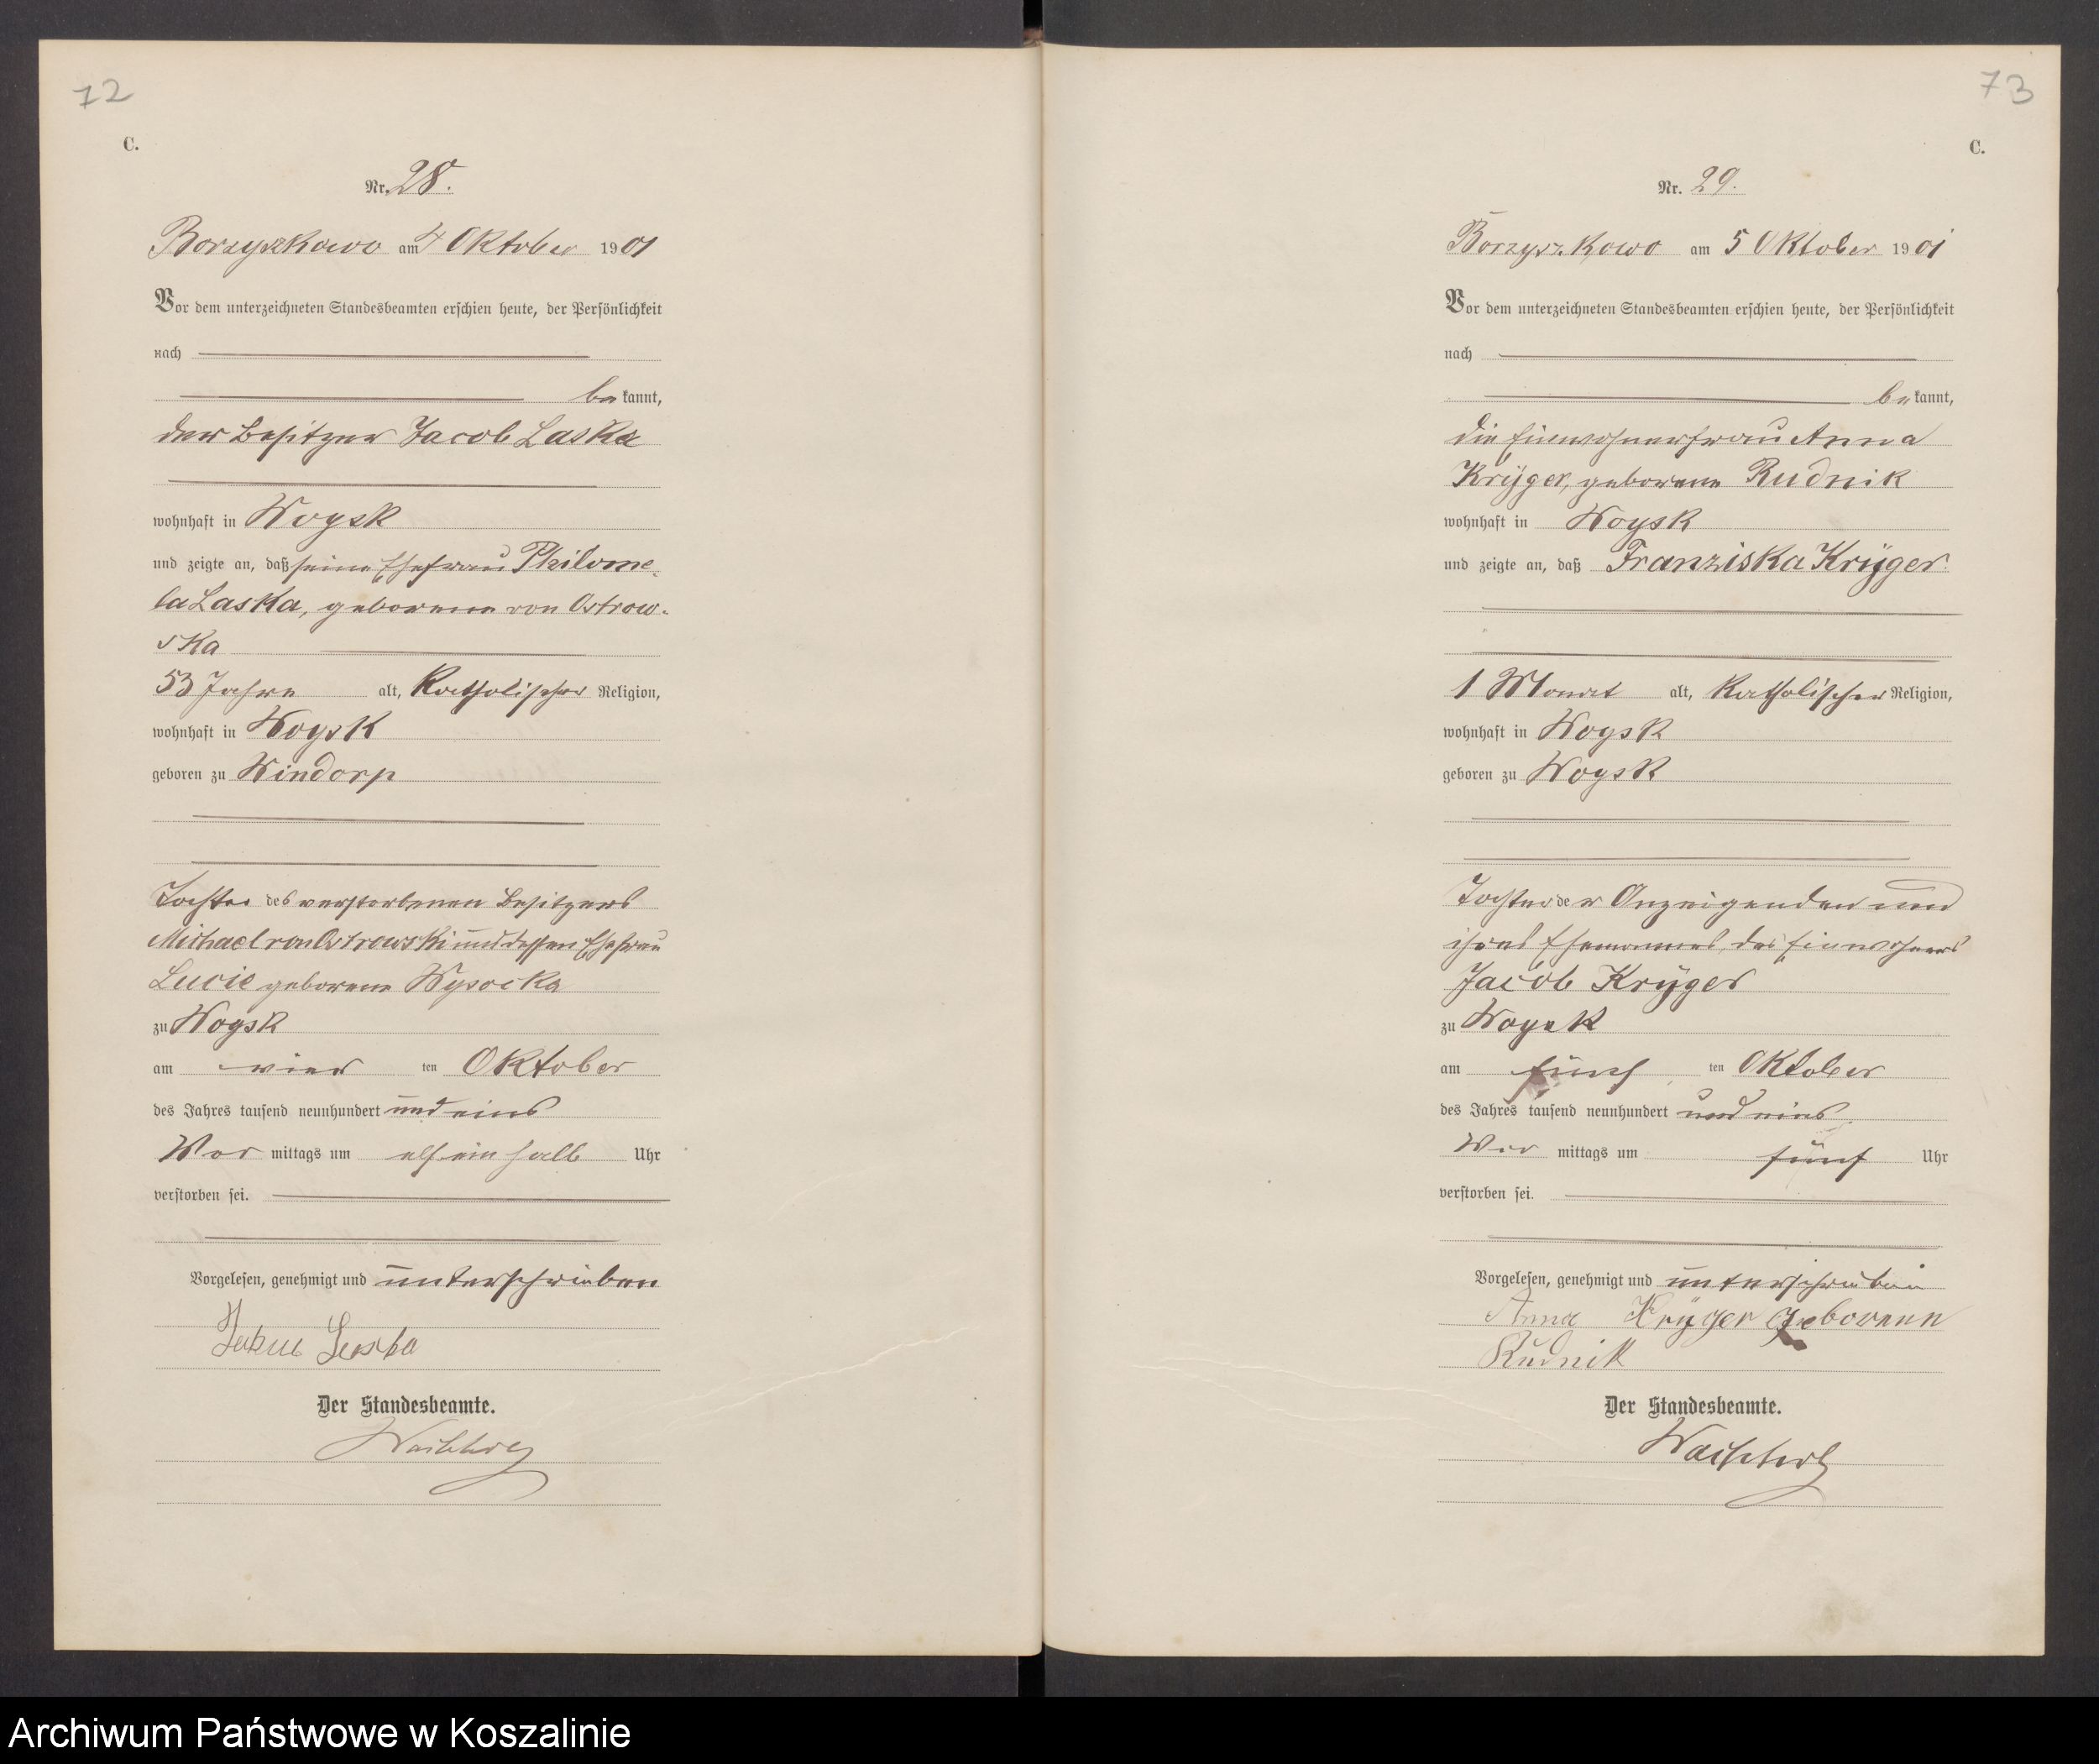 72
C.
Nr. 28.
Borzyszkowo am 4 Oktober 1901
Vor dem unterzeichneten Standesbeamten erschien heute, der Persönlichkeit
nach
bekannt,
der Besitzer Jacob Laska
wohnhaft in Woysk
und zeigte an, daß seine Ehefrau Philome-
la Laska, geborene von Ostrow-
ska
53 Jahre alt, Katholischer Religion,
wohnhaft in Woysk
geboren zu Windorp
Tochter des verstorbenen Besitzers
Michael von Ostrowski und dessen Ehefrau
Lucie geborene Wysocka
zu Woysk
am vier ten Oktober
des Jahres tausend neunhundert und eins
Vor mittags um elf ein halb Uhr
verstorben sei.
Vorgelesen, genehmigt und unterschrieben
Laska
Der Standesbeamte.
73
C.
Nr. 29.
Borzyszkowo am 5 Oktober 1901
Vor dem unterzeichneten Standesbeamten erschien heute, der Persönlichkeit
nach
bekannt,
die Einwohnerfrau Anna
Krÿger, geborene Rudnik
wohnhaft in Woysk
und zeigte an, daß Franziska Krÿger
1 Monat alt, Katholischer Religion,
wohnhaft in Woysk
geboren zu Woysk
Tochter der Anzeigenden und
ihres Ehemannes, des Einwohners
Jacob Krÿger
zu Woysk
am fünf ten Oktober
des Jahres tausend neunhundert und eins
Vor mittags um fünf Uhr
verstorben sei.
Vorgelesen, genehmigt und unterschrieben
Anna Krÿger geborene
Rudnik
Der Standesbeamte.
Archiwum Państwowe w Koszalinie